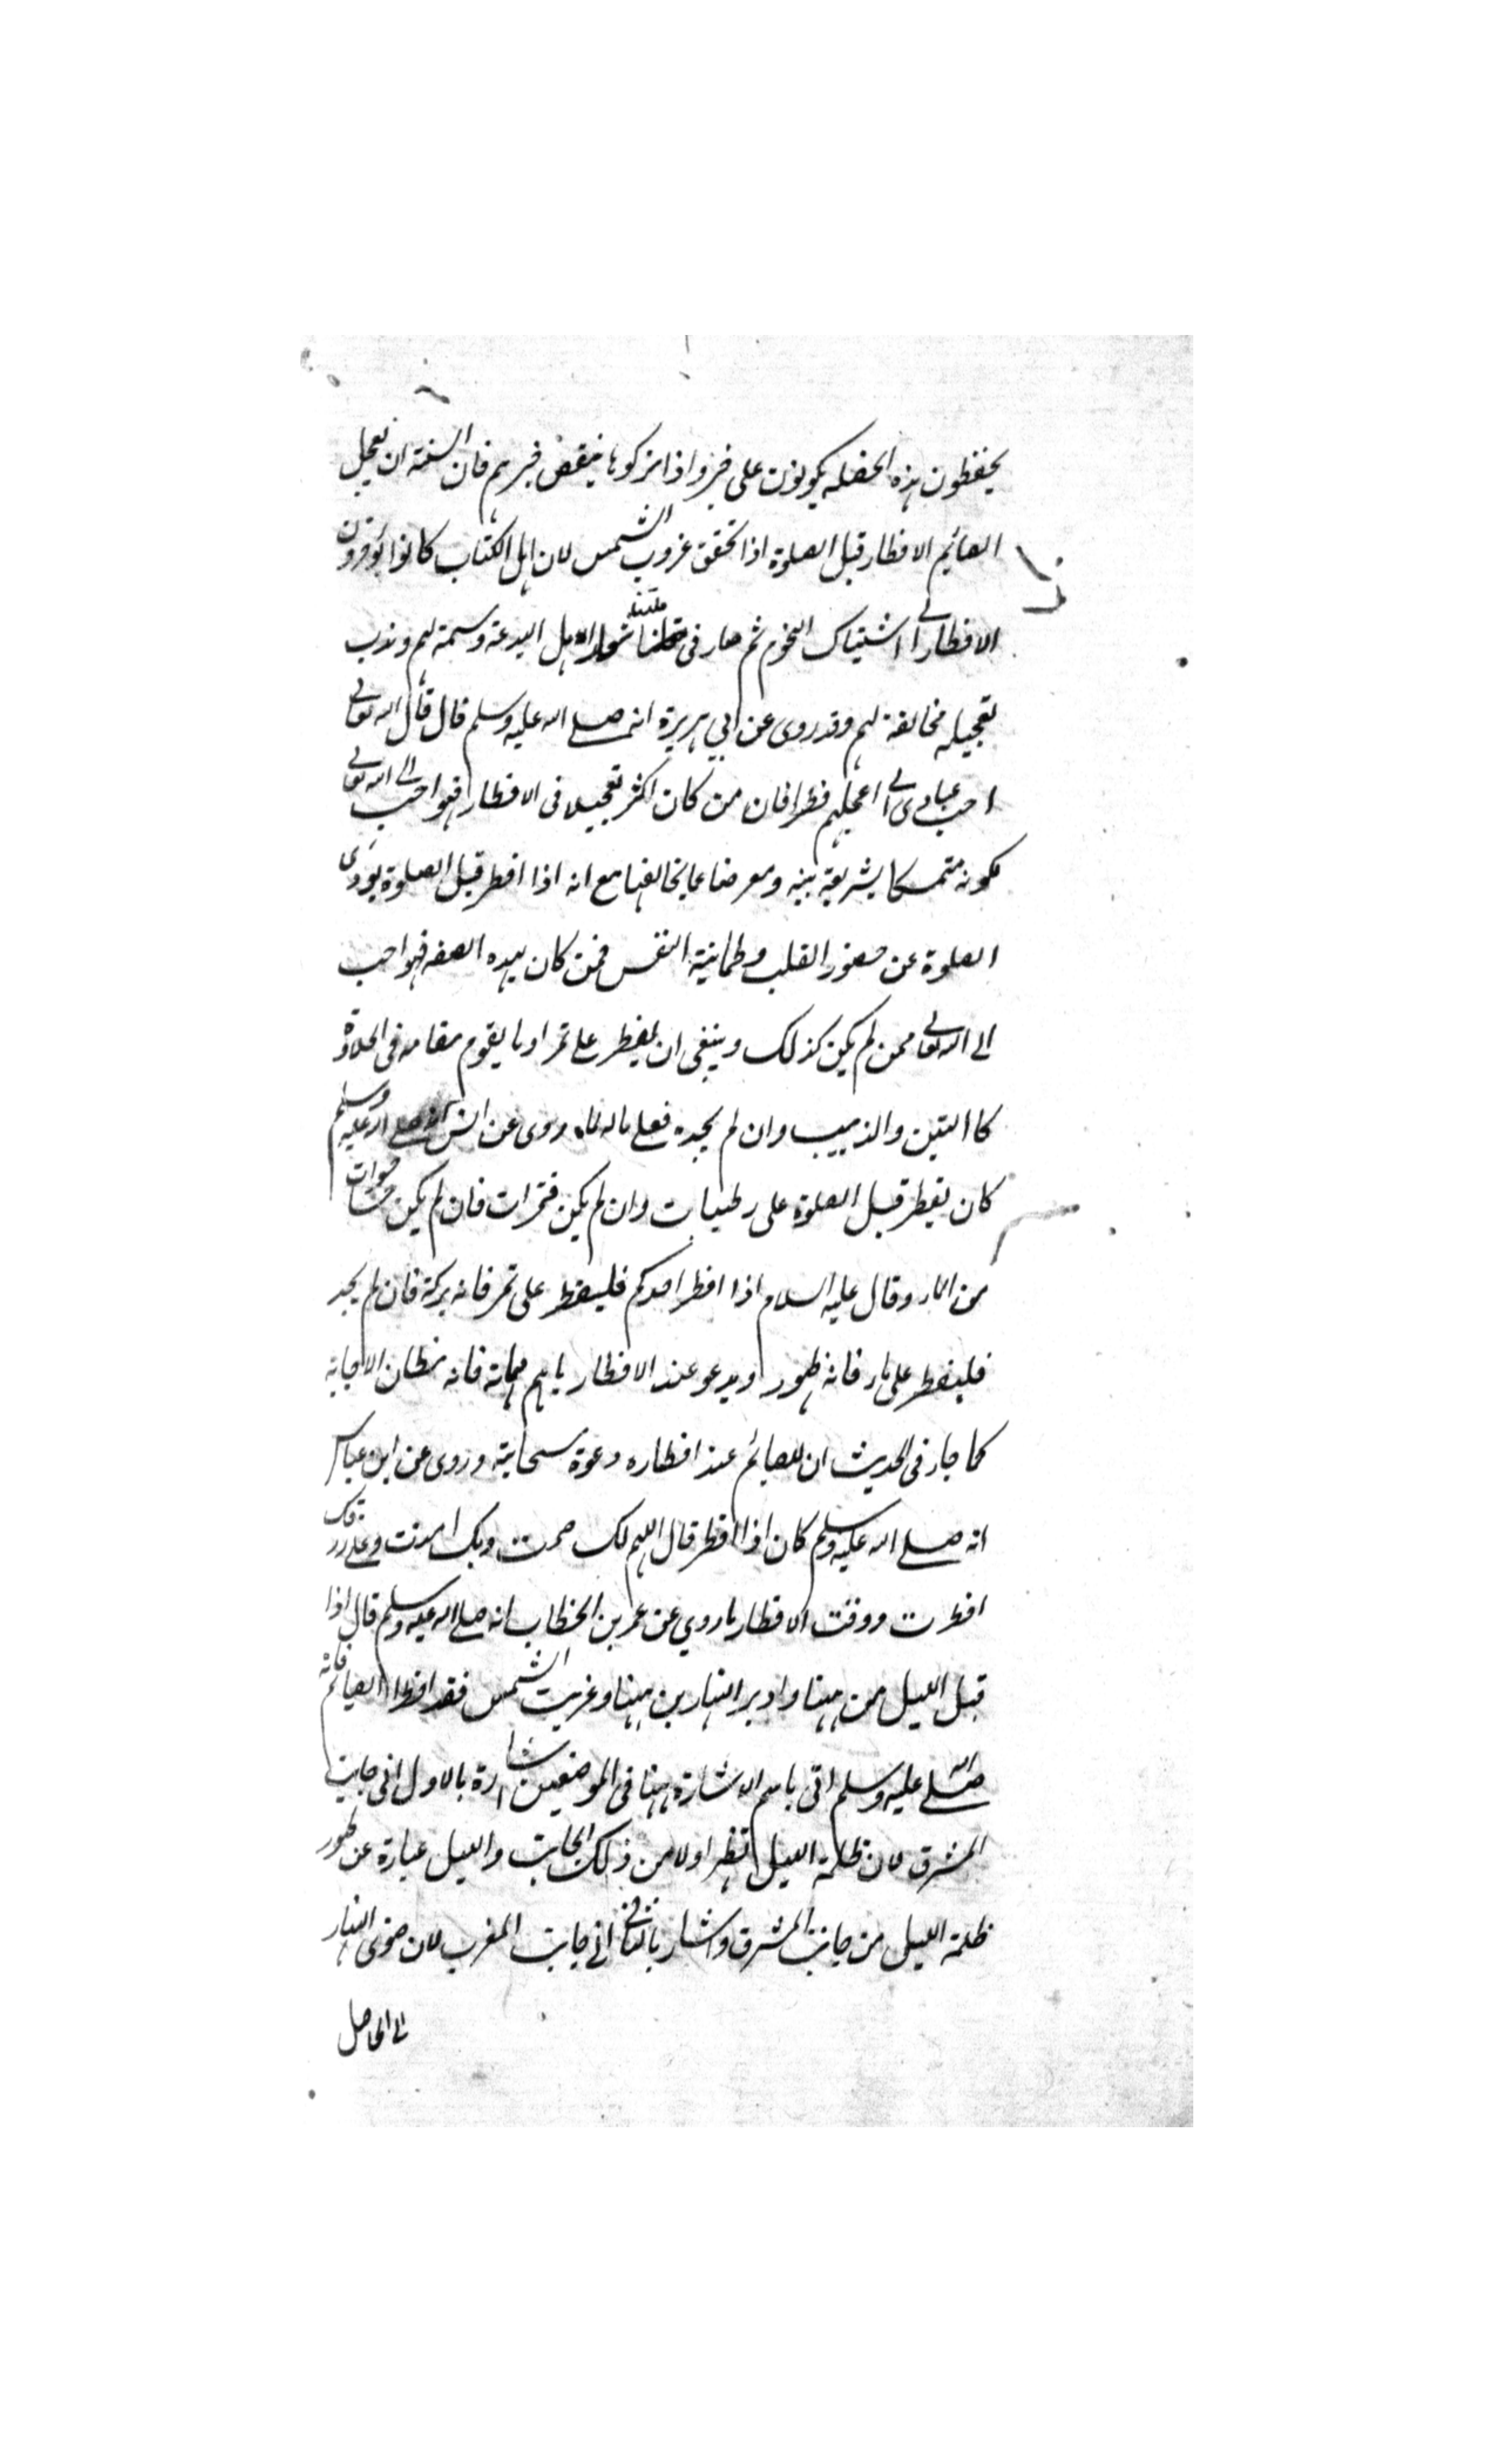 يحفظون هذه الخصلة يكونون على خير واذا تركوها ينقص خيرهم فان السنة ان يعجل
الصائم الافطار قبل الصلوة اذا تحقق غروب الشمس لان اهل الكتاب كانوا يؤخرون
الافطار الى اشتباك النجوم ثم صار في ملتنا شعارا لاهل البدعة وسمة لهم وندب
تعجيله مخالفة لهم وقد روى عن ابي هريرة انه صلى الله عليه وسلم قال قال الله تعالى
احب عبادى الى اعجلهم فطرا فان من كان اكثر تعجيلا فى الافطار فهو احب الى الله تعالى
لكونه متمسكا بشريعة نبيه ومعرضا عما يخالفها مع انه اذا افطر قبل الصلوة يؤدى
الصلوة عن حضور القلب وطمانية النفس فمن كان بهذه الصفه فهو احب
الى الله تعالى ممن لم يكن كذلك وينبغى ان يفطر على تمر او ما يقوم مقامه فى الحلاوة
كا التين والزبيب وان لم يجده فعلى ماء لما روى عن انس انه صلى الله عليه وسلم
كان يفطر قبل الصلوة على رطبات وان لم يكن فتمرات فان لم يكن حسا حسوات
من الماء وقال عليه السلام اذا افطر احدكم فليفطر على تمر فانه بركة فان لم يجد
فليفطر على ماء فانه طهور ويدعو عند الافطار باهم مهماته فانه مظان الاجابة
كما جاء فى الحديث ان للصائم عند افطاره دعوة مستجابة وروى عن ابن عباس
انه صلى الله عليه وسلم كان اذا افطر قال اللهم لك صمت وبك امنت وعلى رزقك
افطرت ووقت الافطار ما روي عن عمر بن الخطاب انه صلى الله عليه وسلم قال اذا
قبل الليل من ههنا وادبر النهار من ههنا وغربت الشمس فقد افطر الصائم فانه
صلى الله عليه وسلم اتى باسم الاشارة ههنا فى الموضعين اشارة بالاول الى جانب
المشرق لان ظلمة الليل تظهر اولا من ذلك الجانب والليل عبارة عن ظهور
ظلمة الليل من جانب المشرق واشار بالثانى الى جانب المغرب لان ضوئ النهار
الى الحاصل